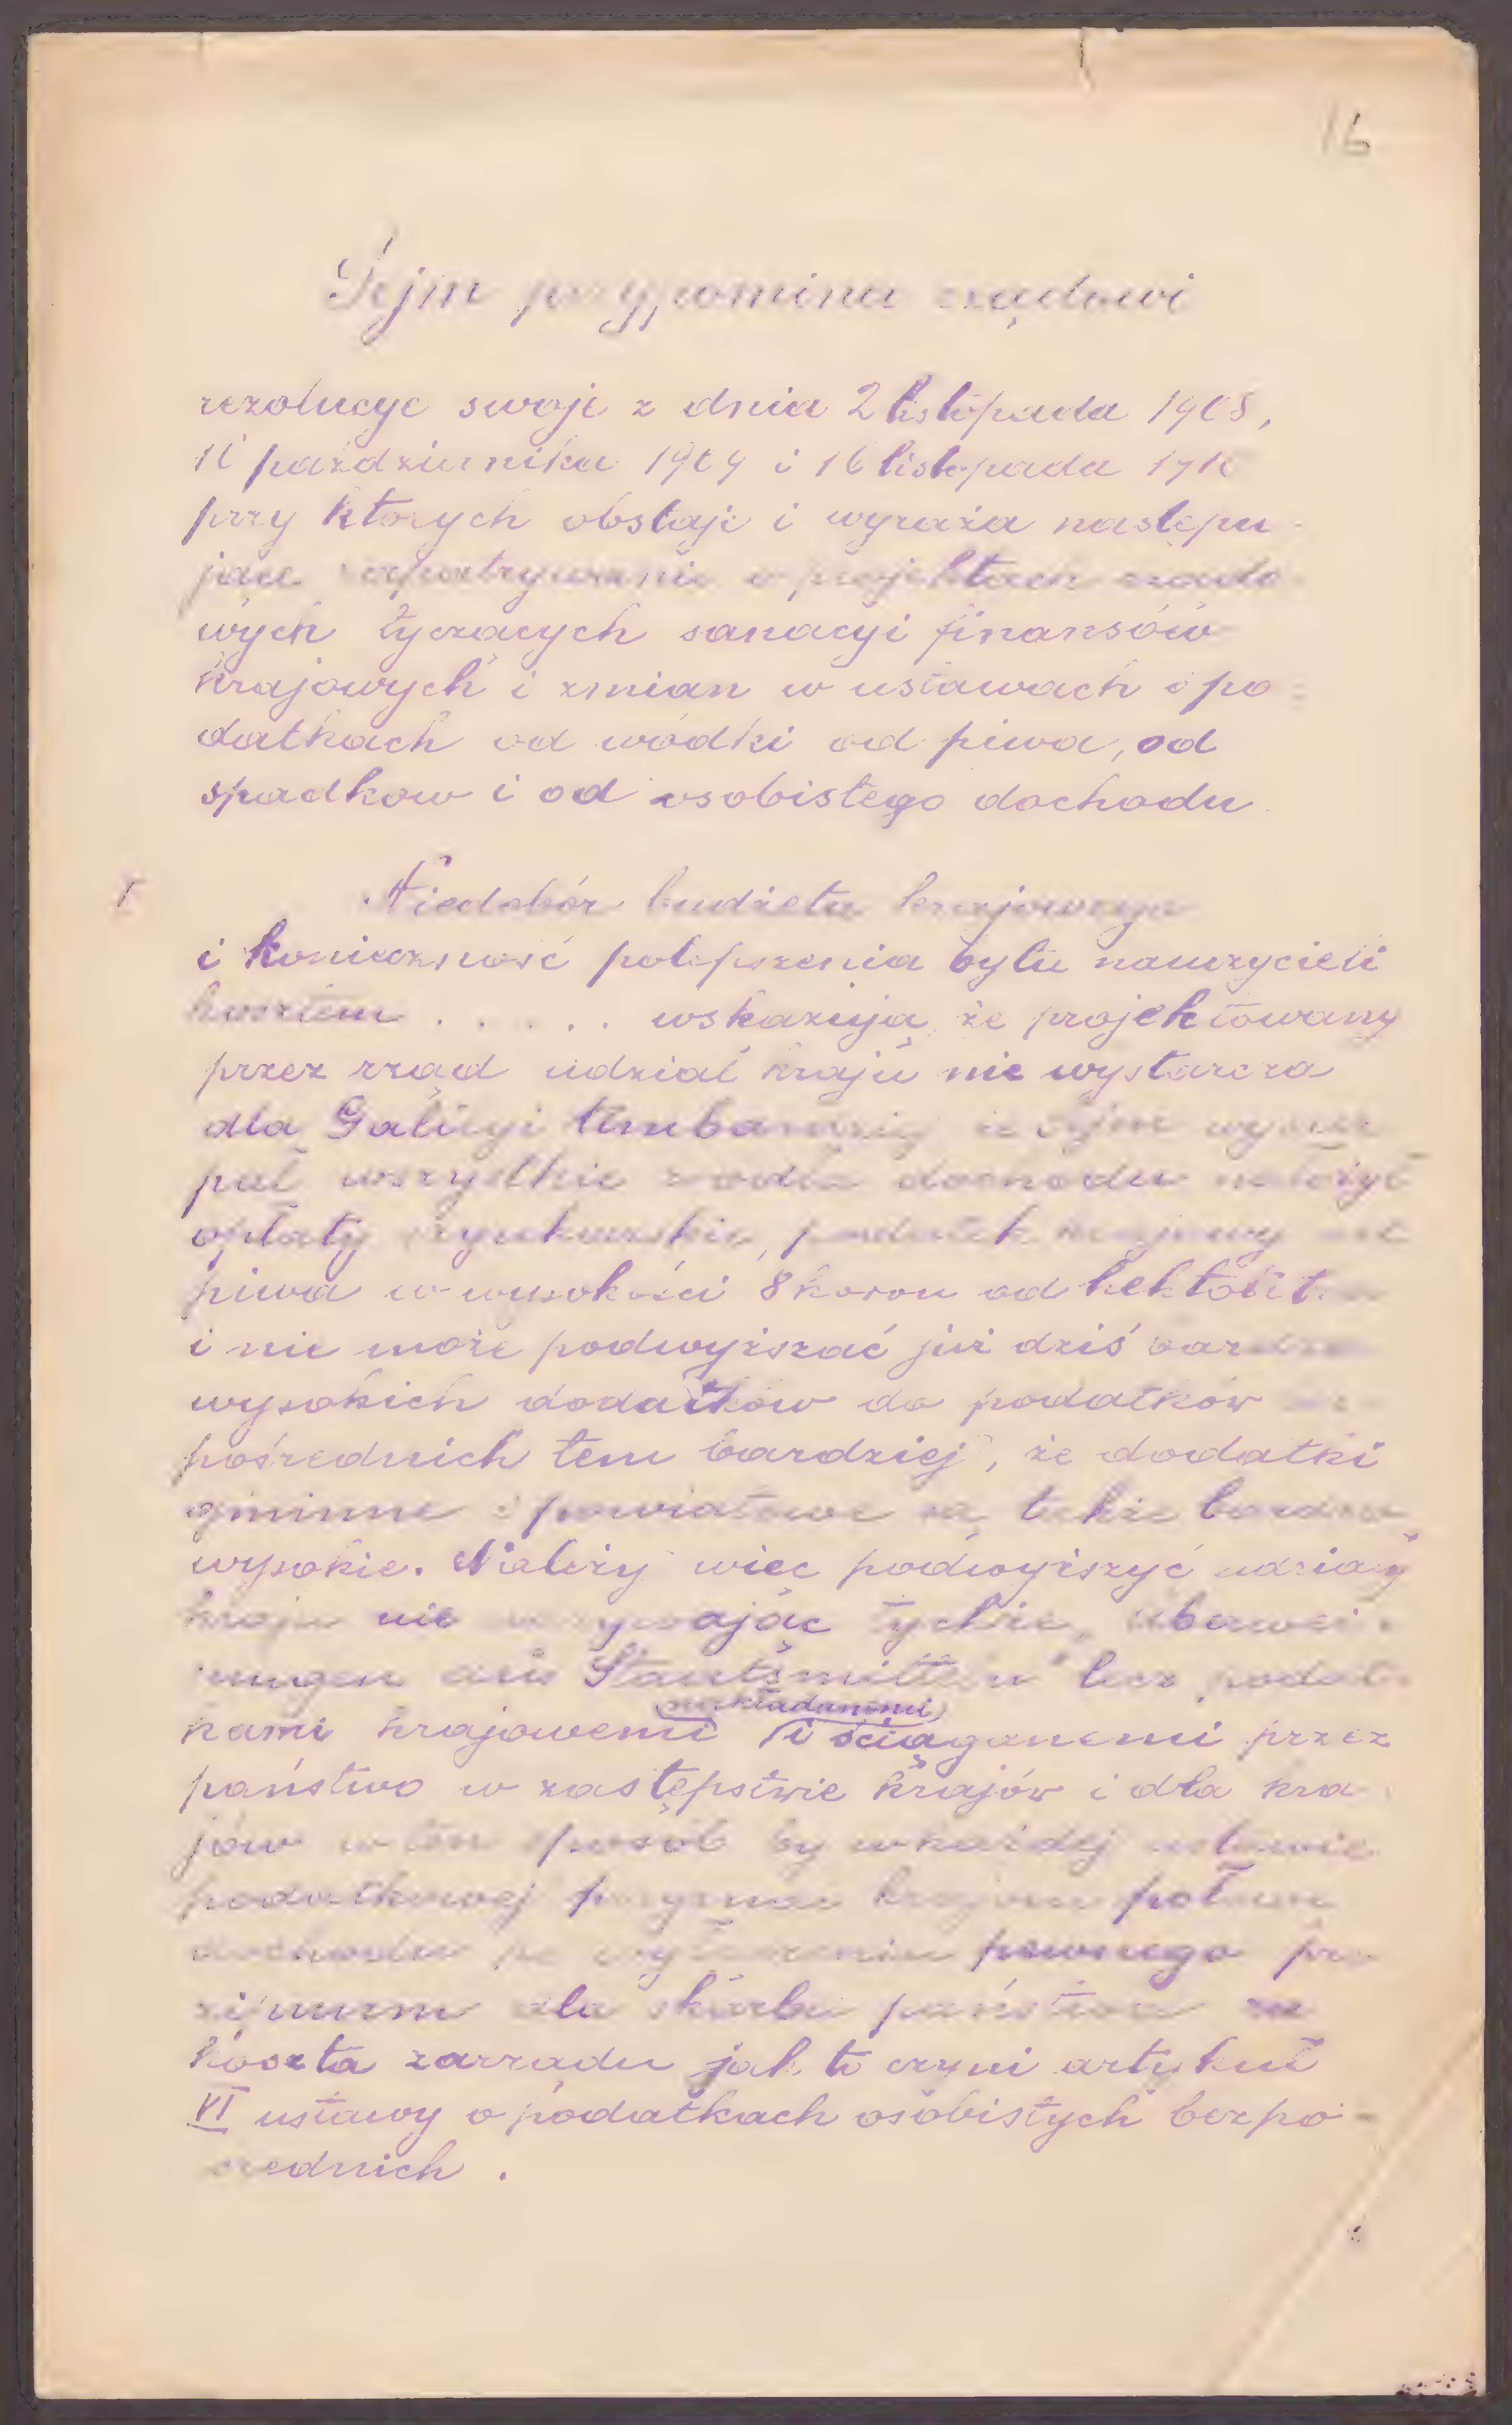 16
Sejm przypomina rządowi
rezolucye swoje z dnia 2 listopada 1908,
16 października 1909 i 16 listopada 1910
przy których obstaje i wyraża następu-
jące zapatrywanie o projektach rządo-
wych tyczących sanacyi finansów
krajowych i zmian w ustawach o po=
datkach od wódki od piwa, od
spadkow i od osobistego dochodu
I
Niedobór budżetu krajowego
i konieczność polepszenia bytu nauczycieli
kosztem . . . . . wskazują że projektowany
przez rząd udział kraju nie wystarcza
dla Galicyi tembardziej że Sejm wyczer
pał wszystkie źrodła dochodu nałożył
opłaty szynkarskie, podatek krajowy od
piwa w wysokości 8 koron od hektolit
i nie może podwyższać już dziś bardzo
wysokich dodatków do podatków
pośrednich tem bardziej, że dodatki
gminne i powiatowe są także bardzo
wysokie. Należy więc podwyższyć udział
kraju nie nazywając tychże „Überwei-
sungen aus Staatsmitteln" lecz podat
kami krajowemi i ściąganemi przez
nakładanemi
państwo w zastępstwie krajów i dla kra-
jów w ten sposób by w każdej ustawie
podatkowej przyznać krajom połowę
dochodu po wyłączeniu pewnego
dla skarbu państwa na
koszta zarządu jak to czyni artykuł
VI ustawy o podatkach osobistych bezpo-
średnich.